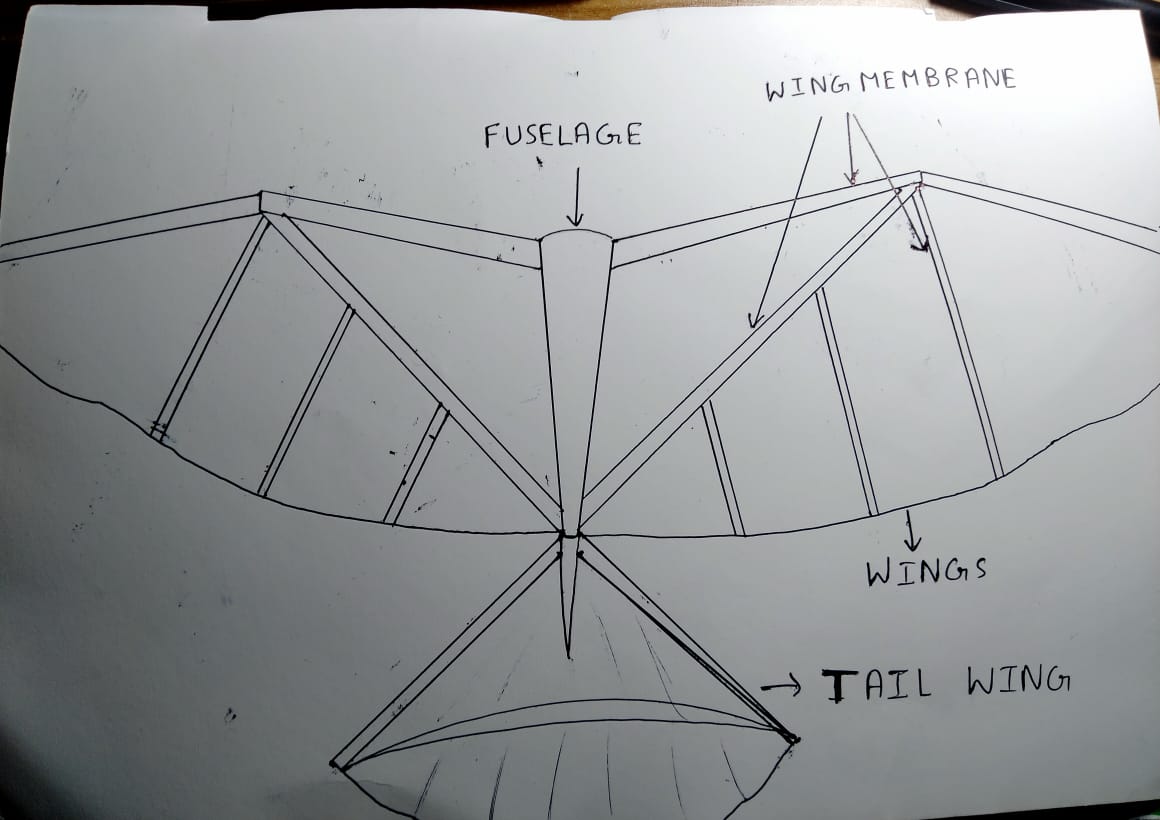 WING MEMBRANE
FUSELAGE
WINGS
TAIL WING